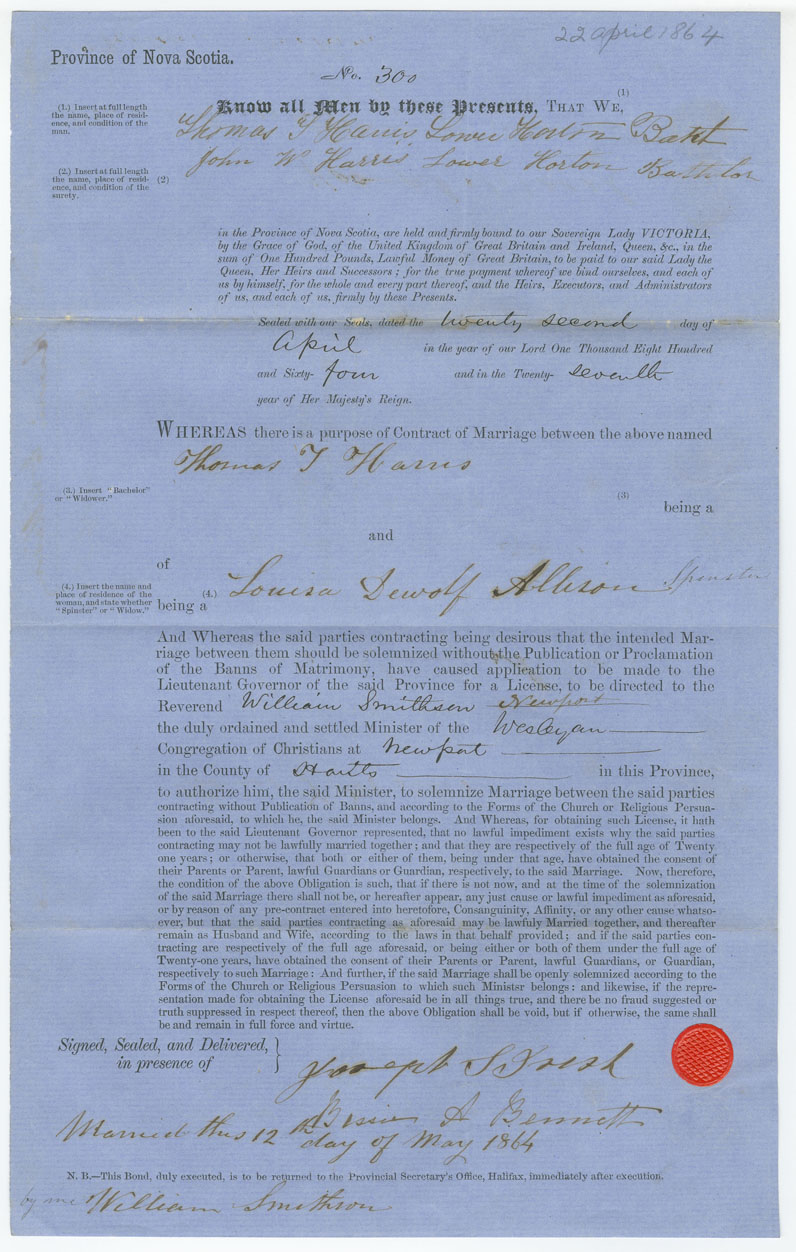 22 april 1864
Province of Nova Scotia.
No. 300
(1)
Know all Men by these Presents, THAT WE,
(1.) Insert at full length
the name, place of resid-
ence, and condition of the
man.
Thomas T Harris Lower Horton Batch
(2.) Insert at full length
the name, place of resid-
ence, and condition of the
surety.
(2)
John W Harris Lower Horton Bathelor
in the Province of Nova Scotia, are held and firmly bound to our Sovereign Lady VICTORIA,
by the Grace of God, of the United Kingdom of Great Britain and Ireland, Queen, &c., in the
sum of One Hundred Pounds, Lawful Money of Great Britain, to be paid to our said Lady the
Queen, Her Heirs and Successors; for the true payment whereof we bind ourselves, and each of
us by himself, for the whole and every part thereof, and the Heirs, Executors, and Administrators
of us, and each of us, firmly by these Presents.
Sealed with our Seals, dated the twenty second day of
April in the year of our Lord One Thousand Eight Hundred
and Sixty- four and in the Twenty- seventh
year of Her Majesty's Reign.
WHEREAS there is a purpose of Contract of Marriage between the above named
Thomas T Harris
(3.) Insert "Bachelor"
or "Widower."
(3)
being a
and
of
(4.) Insert the name and
place of residence of the
woman, and state whether
"Spinster" or "Widow."
(4.) Louisa Dewolf Allison Spinster
being a
And Whereas the said parties contracting being desirous that the intended Mar-
riage between them should be solemnized without the Publication or Proclamation
of the Banns of Matrimony, have caused application to be made to the
Lieutenant Governor of the said Province for a License, to be directed to the
Reverend William Smithson Newport
the duly ordained and settled Minister of the Wesleyan
Congregation of Christians at Newport
in the County of Hants in this Province,
to authorize him, the said Minister, to solemnize Marriage between the said parties
contracting without Publication of Banns, and according to the Forms of the Church or Religious Persua-
sion aforesaid, to which he, the said Minister belongs. And Whereas, for obtaining such License, it hath
been to the said Lieutenant Governor represented, that no lawful impediment exists why the said parties
contracting may not be lawfully married together; and that they are respectively of the full age of Twenty
one years; or otherwise, that both or either of them, being under that age, have obtained the consent of
their Parents or Parent, lawful Guardians or Guardian, respectively, to the said Marriage. Now, therefore,
the condition of the above Obligation is such, that if there is not now, and at the time of the solemnization
of the said Marriage there shall not be, or hereafter appear, any just cause or lawful impediment as aforesaid,
or by reason of any pre-contract entered into heretofore, Consanguinity, Affinity, or any other cause whatso-
ever, but that the said parties contracting as aforesaid may be lawfuly Married together, and thereafter
remain as Husband and Wife, according to the laws in that behalf provided; and if the said parties con-
tracting are respectively of the full age aforesaid, or being either or both of them under the full age of
Twenty-one years, have obtained the consent of their Parents or Parent, lawful Guardians, or Guardian,
respectively to such Marriage: And further, if the said Marriage shall be openly solemnized according to the
Forms of the Church or Religious Persuasion to which such Ministsr belongs: and likewise, if the repre-
sentation made for obtaining the License aforesaid be in all things true, and there be no fraud suggested or
truth suppressed in respect thereof, then the above Obligation shall be void, but if otherwise, the same shall
be and remain in full force and virtue.
Signed, Sealed, and Delivered,
in presence of
Joseph
A Bennett
Married this 12th day of May 1864
N. B.—This Bond, duly executed, is to be returned to the Provincial Secretary's Office, Halifax, immediately after execution.
by me William Smithson